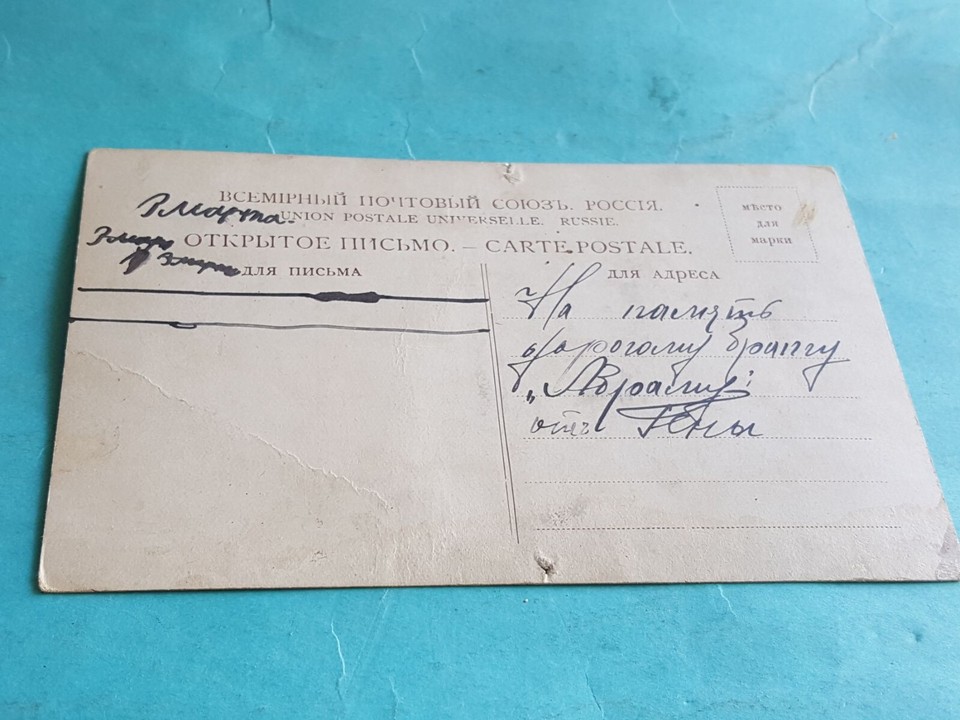 ВСЕМІРНЫЙ ПОЧТОВЫЙ СОЮЗЪ. РОССІЯ.
UNION POSTALE UNIVERSELLE. RUSSIE.
ОТКРЫТОЕ ПИСЬМО. – CARTE POSTALE.
мѣсто
для
марки
ДЛЯ ПИСЬМА
ДЛЯ АДРЕСА
На память
дорогому брату
„Абраму"
отъ Гени